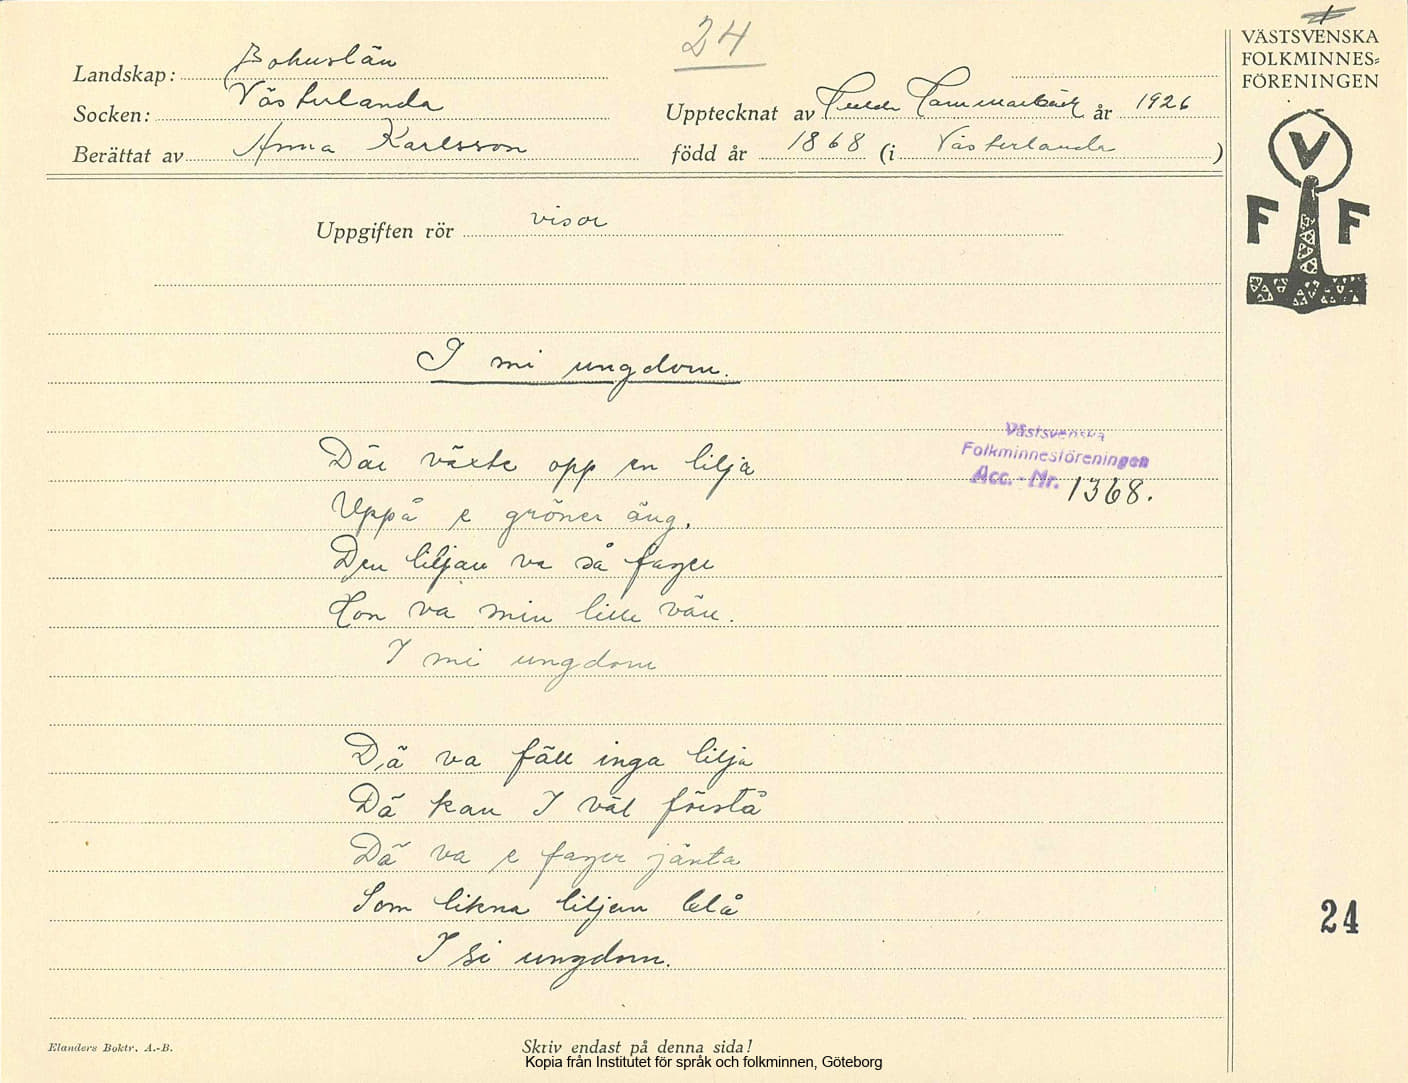 24
VÄSTSVENSKA
FOLKMINNES=
FÖRENINGEN
Landskap: Bohuslän
Socken: Västerlanda
Upptecknat av Hulda Hammarbäck år 1926
Berättat av Anna Karlsson
född år 1868 (i Västerlanda)
V
F F
Uppgiften rör visor
I mi ungdom.
Där växte opp en lilja
Uppå e gröner äng.
Den liljan va så fager
Hon va min lille vän.
I mi ungdom
Västsvenska
Folkminnesföreningen
Acc. - Nr. 1368.
Dä va fäll inga lilja
Dä kan I väl förstå
Dä va e fager jänta
Som likna liljan blå
I si ungdom.
24
Elanders Boktr. A.-B.
Skriv endast på denna sida!
Kopia från Institutet för språk och folkminnen, Göteborg